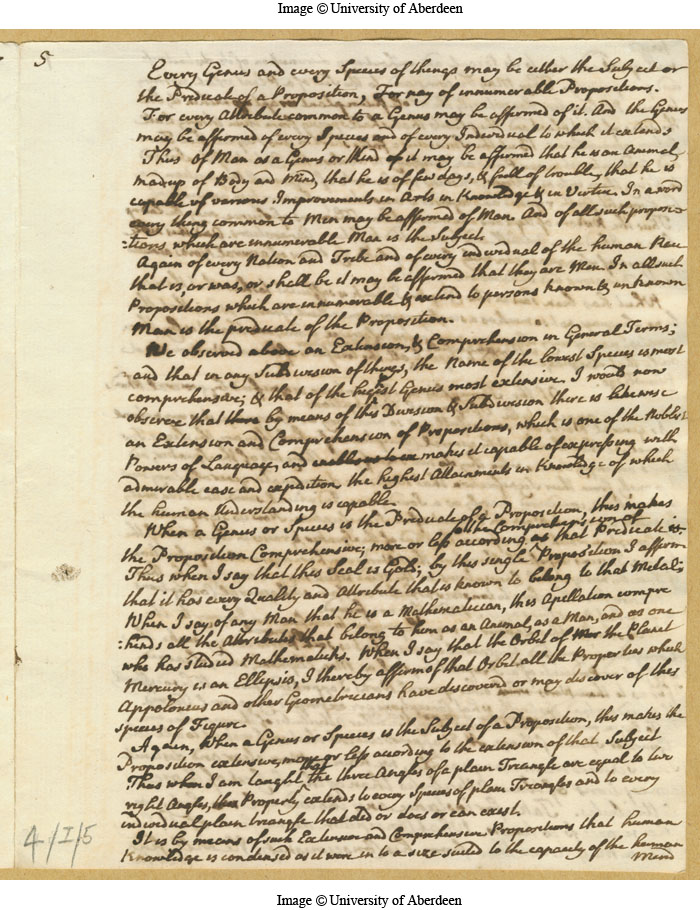 Image © University of Aberdeen
5
Every Genus and every Species of things may be either the Subject or
the Predicate of a Proposition, For nay of innumerable Propositions.
For every Attribute common to a Genus may be affirmed of it. And the Genus
may be affirmed of every Species and of every Individual to which it extends
Thus Of Man as a Genus or Kind it may be affirmed that he is an Animal
made up of Body and Mind, that he is of few days, & full of trouble, that he is
capable of various Improvements in Arts in Knowledge & in Virtue. In a word
every thing common to Men may be affirmed of Man. And of all such proposi-
:tions, which are innumerable Man is the Subject.
Again of every Nation and Tribe and of every individual of the human Race
that is, or was, or shall be it may be affirmed that they are Men. In all such
Propositions which are innumerable & extend to persons known & unknown
Man is the predicate of the Proposition.
We observed above an Extension, & Comprehension in General Terms;
and that in any Subdivision of things, the Name of the lowest Species is most
comprehensive; & that of the highest Genus most extensive. I would now
observe that by means of this Division & Subdivision there is likewise
an Extension and Comprehension of Propositions, which is one of the Noblest
Powers of Language, and makes it capable of expressing with
admirable ease and expedition, the highest Attainments in Knowledge of which
the human Understanding is capable.
When a Genus or Species is the Predicate of a Proposition, this makes
the Proposition Comprehensive; more or less according as the Comprehension of that Predicate is.
Thus when I say that this Seal is Gold; by this single Proposition I affirm
that it has every Quality and Attribute that is known to belong to that Metal;
When I say of any Man that he is a Mathematician, this Apellation compre
:hends all the Attributes that belong to him as an Animal, as a Man, and as one
who has studied Mathematicks. When I say that the Orbit of the Planet
Mercury is an Ellipsis, I thereby affirm of that Orbit all the Properties which
Appoloneus and other Geometricians have discovered or may discover of this
species of Figure.
Again, When a Genus or Species is the Subject of a Proposition, this makes the
Proposition extensive, more or less according to the extension of that Subject
Thus when I am taught, that the three Angles of a plain Triangle are equal to two
right Angles, this Property extends to every Species of plain Triangles and to every
individual plain triangle that did or does or can exist.
It is by means of such Extensive and Comprehensive Propositions that human
Knowledge is condensed as it were in to a size suited to the capacity of the human
Mind
4/I/5
Image © University of Aberdeen